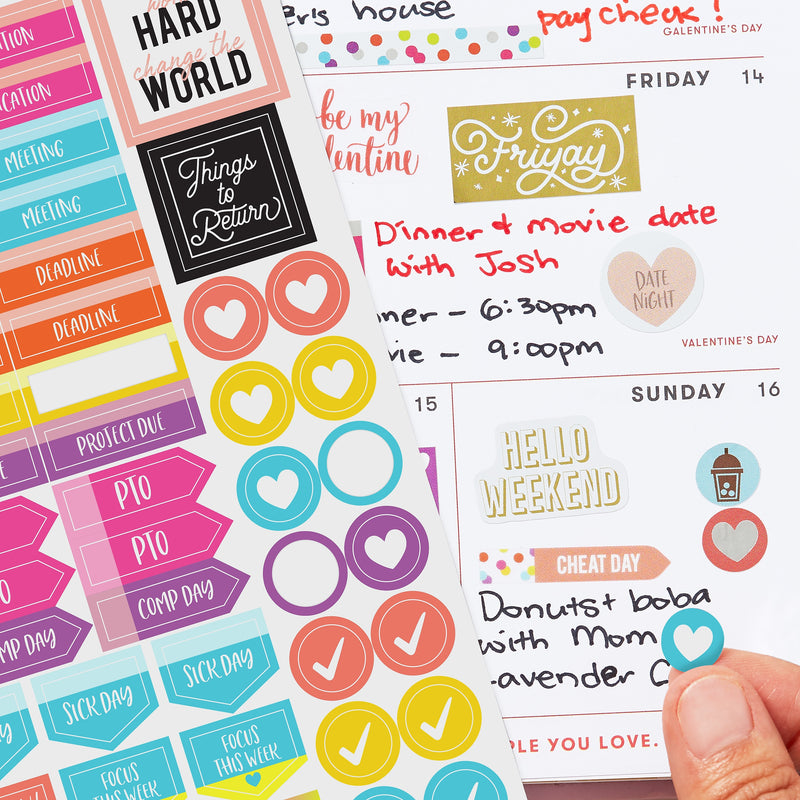 HARD
change the
WORLD
MEETING
MEETING
DEADLINE
DEADLINE
PROJECT DUE
PTO
PTO
COMP DAY
SICK DAY
SICK DAY
FOCUS
THIS WEEK
FOCUS
THIS WEEK
Things
to
Return
house
pay check!
GALENTINE'S DAY
FRIDAY 14
be my
Friyay
Dinner & movie date
with Josh
DATE
NIGHT
6:30pm
9:00pm
VALENTINE'S DAY
15
SUNDAY 16
HELLO
WEEKEND
CHEAT DAY
Donuts + boba
with Mom
YOU LOVE.